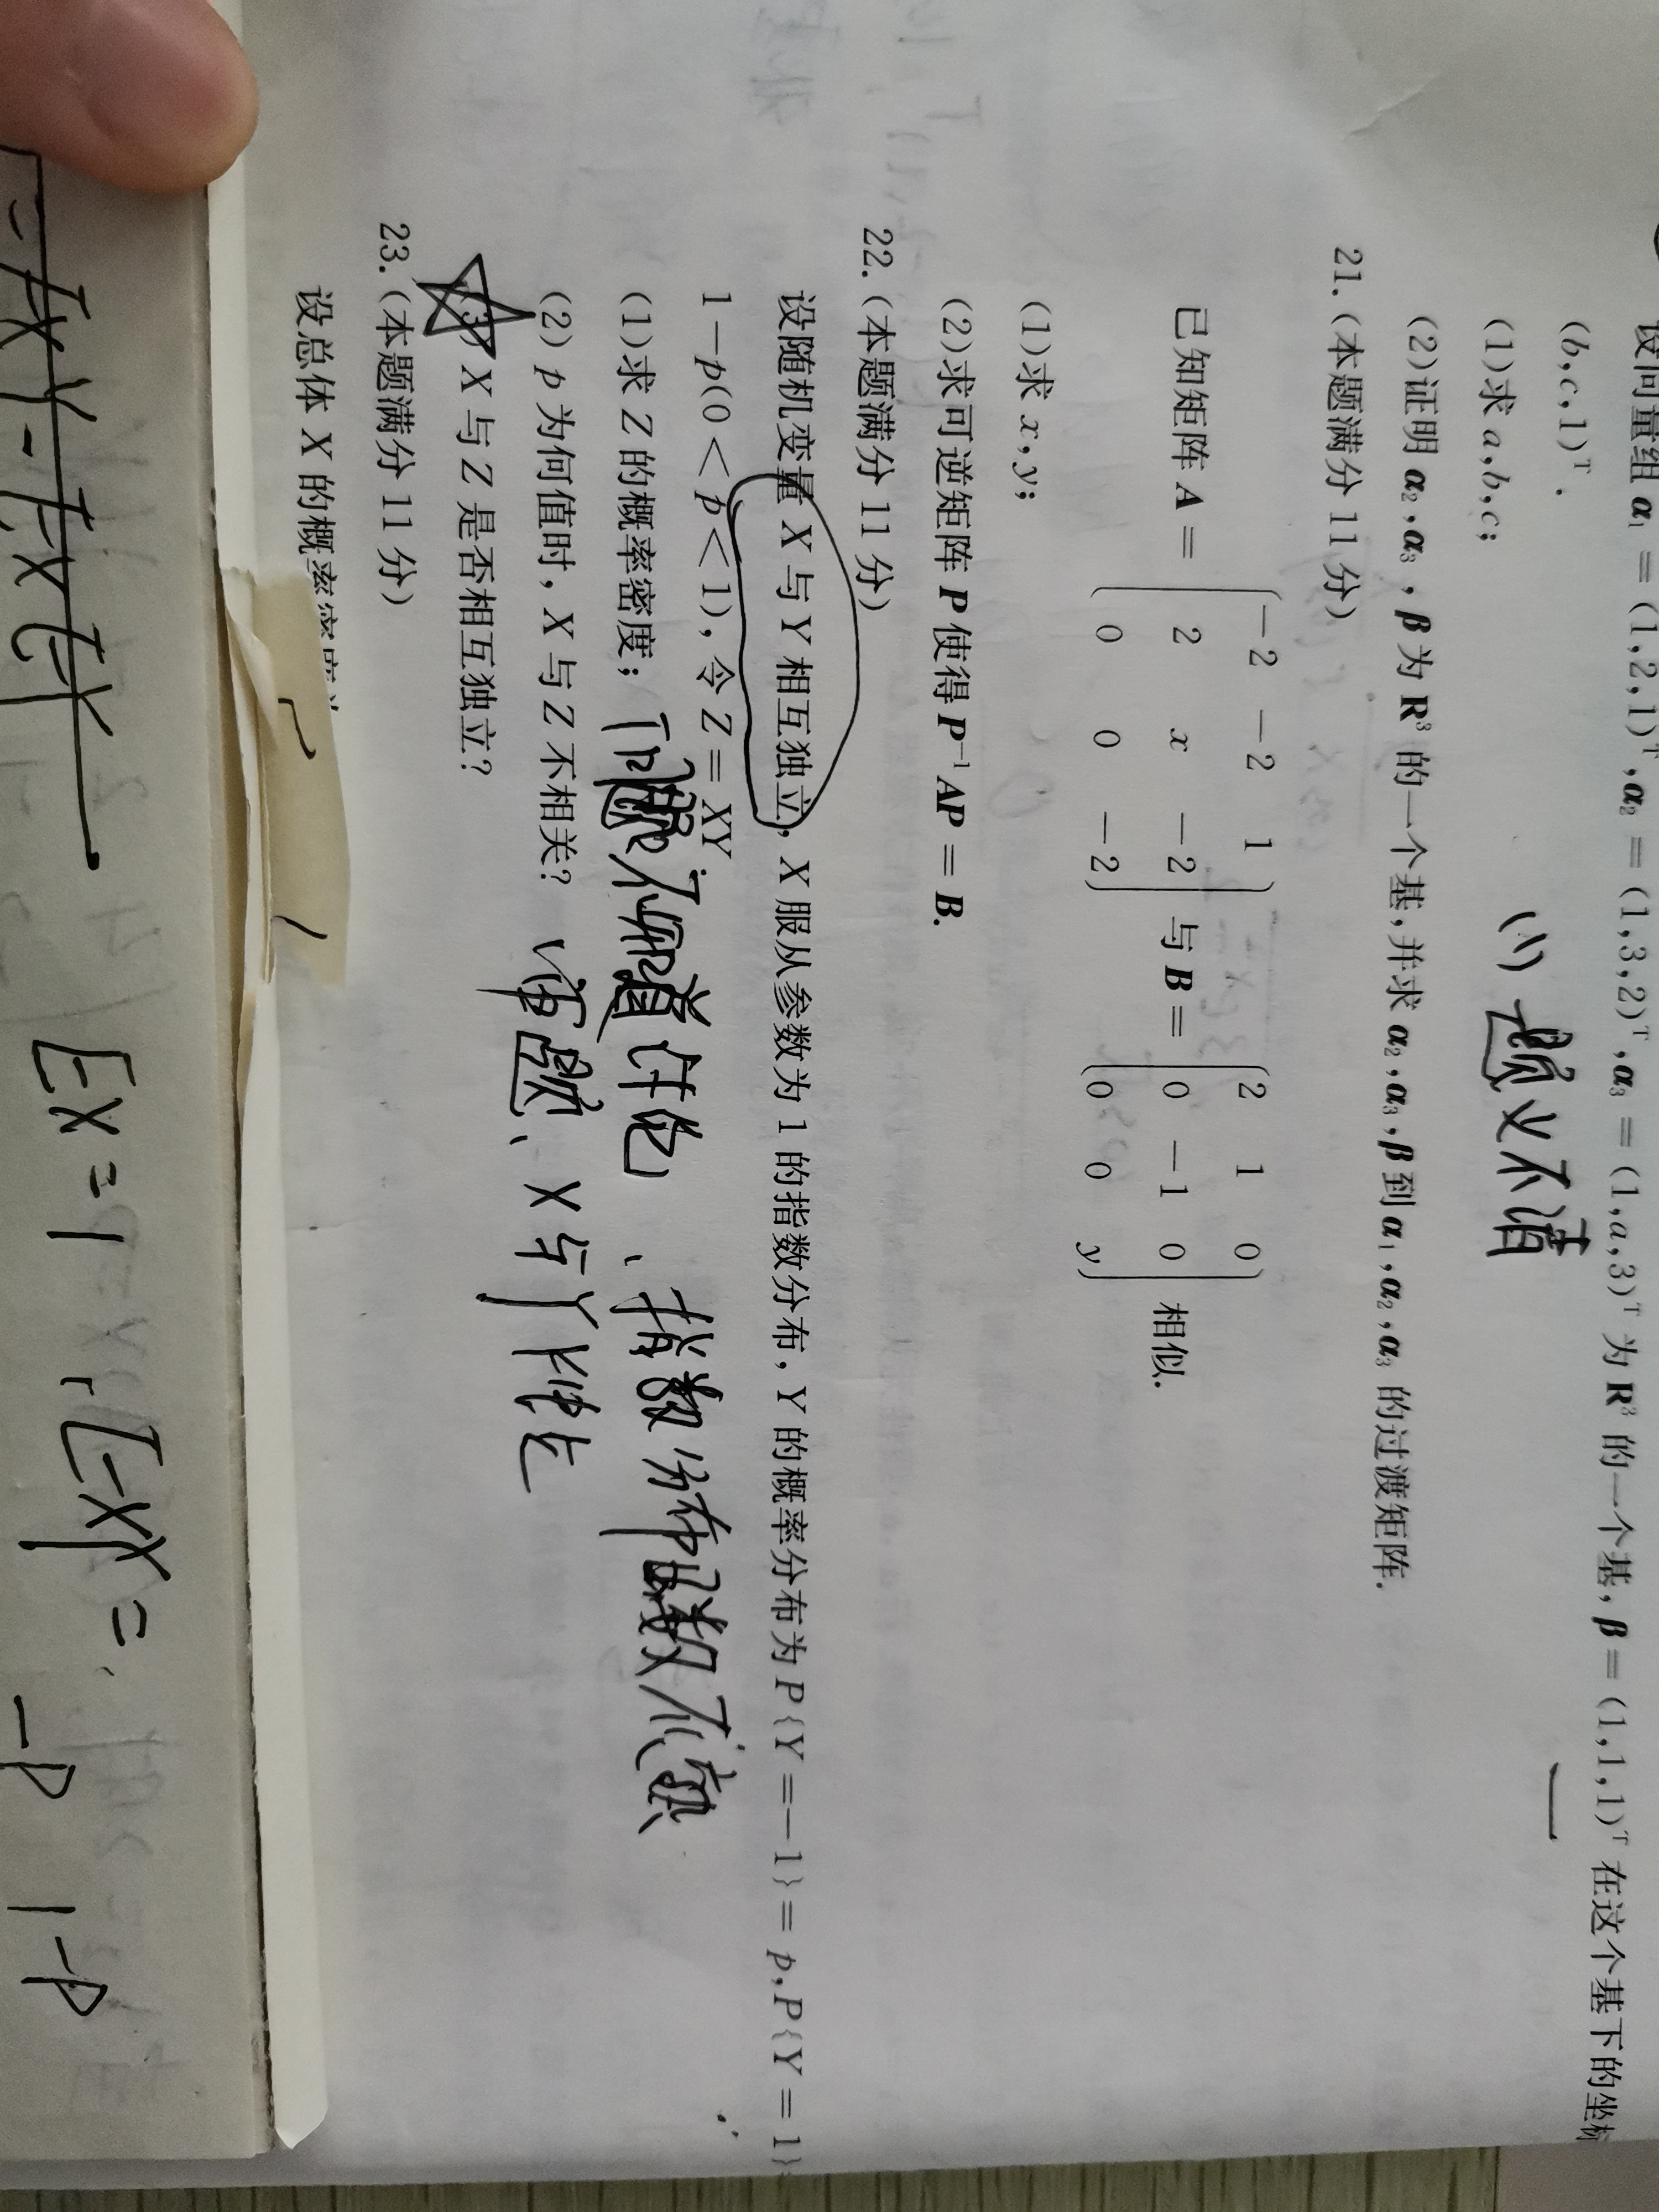 设向量组 α₁ = (1,2,1)ᵀ,α₂ = (1,3,2)ᵀ,α₃ = (1,a,3)ᵀ 为 R³ 的一个基, β = (1,1,1)ᵀ 在这个基下的坐标
(b,c,1)ᵀ.
(1)求 a,b,c;
(1) 题义不清
(2)证明 α₂,α₃, β 为 R³ 的一个基,并求 α₂,α₃,β 到 α₁,α₂,α₃ 的过渡矩阵.
21.(本题满分 11 分)
已知矩阵 A = 与 B = 相似.
-2 -2 1
2 x -2
0 0 -2
2 1 0
0 -1 0
0 0 y
(1)求 x,y;
(2)求可逆矩阵 P 使得 P⁻¹AP = B.
22.(本题满分 11 分)
设随机变量 X 与 Y 相互独立, X 服从参数为 1 的指数分布, Y 的概率分布为 P{Y =-1} = p,P{Y = 1}
1-p(0 < p < 1), 令 Z = XY.
(1)求 Z 的概率密度;
不知道讨论、指数分布函数不熟
(2) p 为何值时, X 与 Z 不相关?
审题、X与Y独立
X 与 Z 是否相互独立?
23.(本题满分 11 分)
设总体 X 的概率密度
EX=1, EXY=
-P 1-P